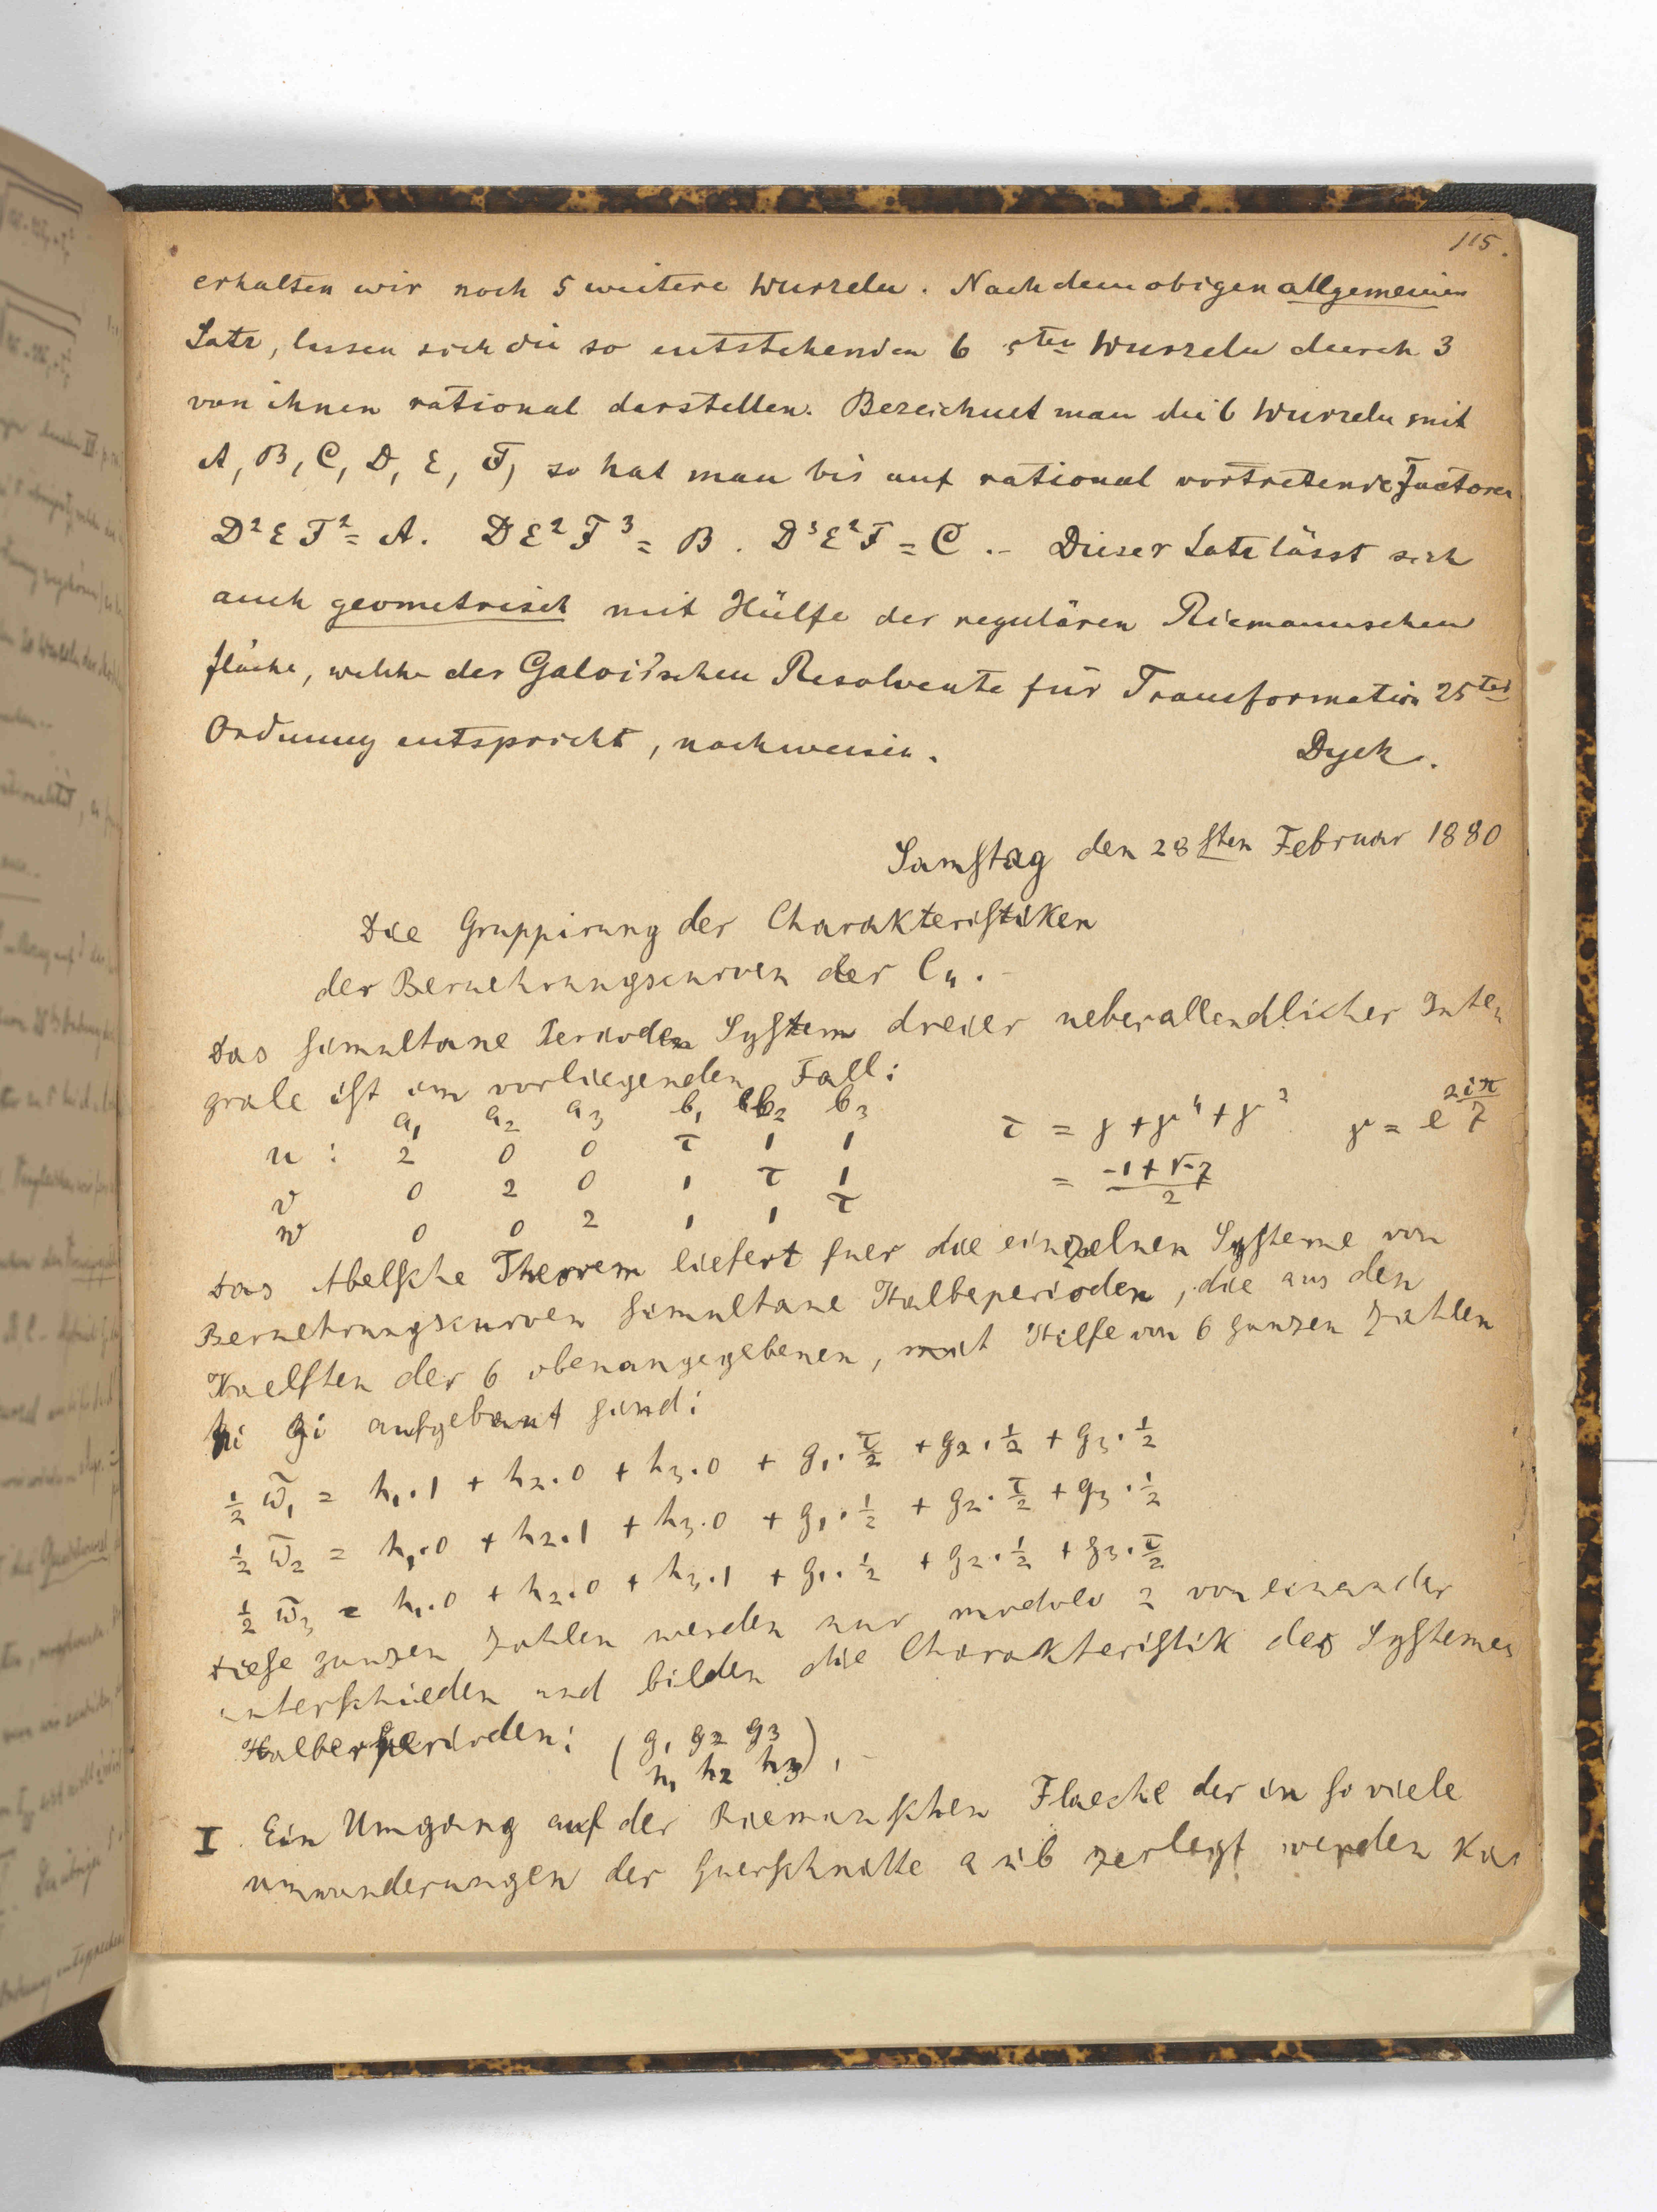 115.
erhalten wir noch 5 weitere Wurzeln. Nach dem obigen allgemeinen
Satz, lassen sich die so entstehenden 6 5ten Wurzeln durch 3
von ihnen rational darstellen. Bezeichnet man die 6 Wurzeln mit
A, B, C, D, E, F, so hat man bis auf rational vortretende Factoren
D² E F² = A. D E² F³ = B. D³ E² F = C. – Dieser Satz lässt sich
auch geometrisch mit Hülfe der regulären Riemannschen
Fläche, welche der Galois'schen Resolvente für Transformation 25ter
Ordnung entspricht, nachweisen. Dyck.
Samstag den 28sten Februar 1880
Die Gruppirung der Charakteristiken
der Beruehrungscurven der C₄. –
Das simultane Perioden System dreier ueberallendlicher Inte
grale ist im vorliegenden Fall:
a₁ a₂ a₃ b₁ b₂ b₃
u : 2 0 0 τ 1 1 τ = γ + γ⁴ + γ² γ = e^(2iπ/7)
v 0 2 0 1 τ 1 = (-1 + √-7)/2
w 0 0 2 1 1 τ
Das Abelsche Theorem liefert fuer die einzelnen Systeme von
Beruehrungscurven simultane Halbeperioden, die aus den
Haelften der 6 obenangegebenen, mit Hilfe von 6 ganzen Zahlen
hi gi aufgebaut sind:
½ ω̃₁ = h₁.1 + h₂.0 + h₃.0 + g₁.τ/2 + g₂.½ + g₃.½
½ ω̃₂ = h₁.0 + h₂.1 + h₃.0 + g₁.½ + g₂.τ/2 + g₃.½
½ ω̃₃ = h₁.0 + h₂.0 + h₃.1 + g₁.½ + g₂.½ + g₃.τ/2
Diese ganzen Zahlen werden nur modulo 2 von einander
unterschieden und bilden die Charakteristik des Systemes
Halberperioden: (g₁ g₂ g₃
h₁ h₂ h₃). –
I. Ein Umgang auf der Riemanschen Flaeche der in so viele
umwanderungen der Querschnitte a u b zerlegt werden kan